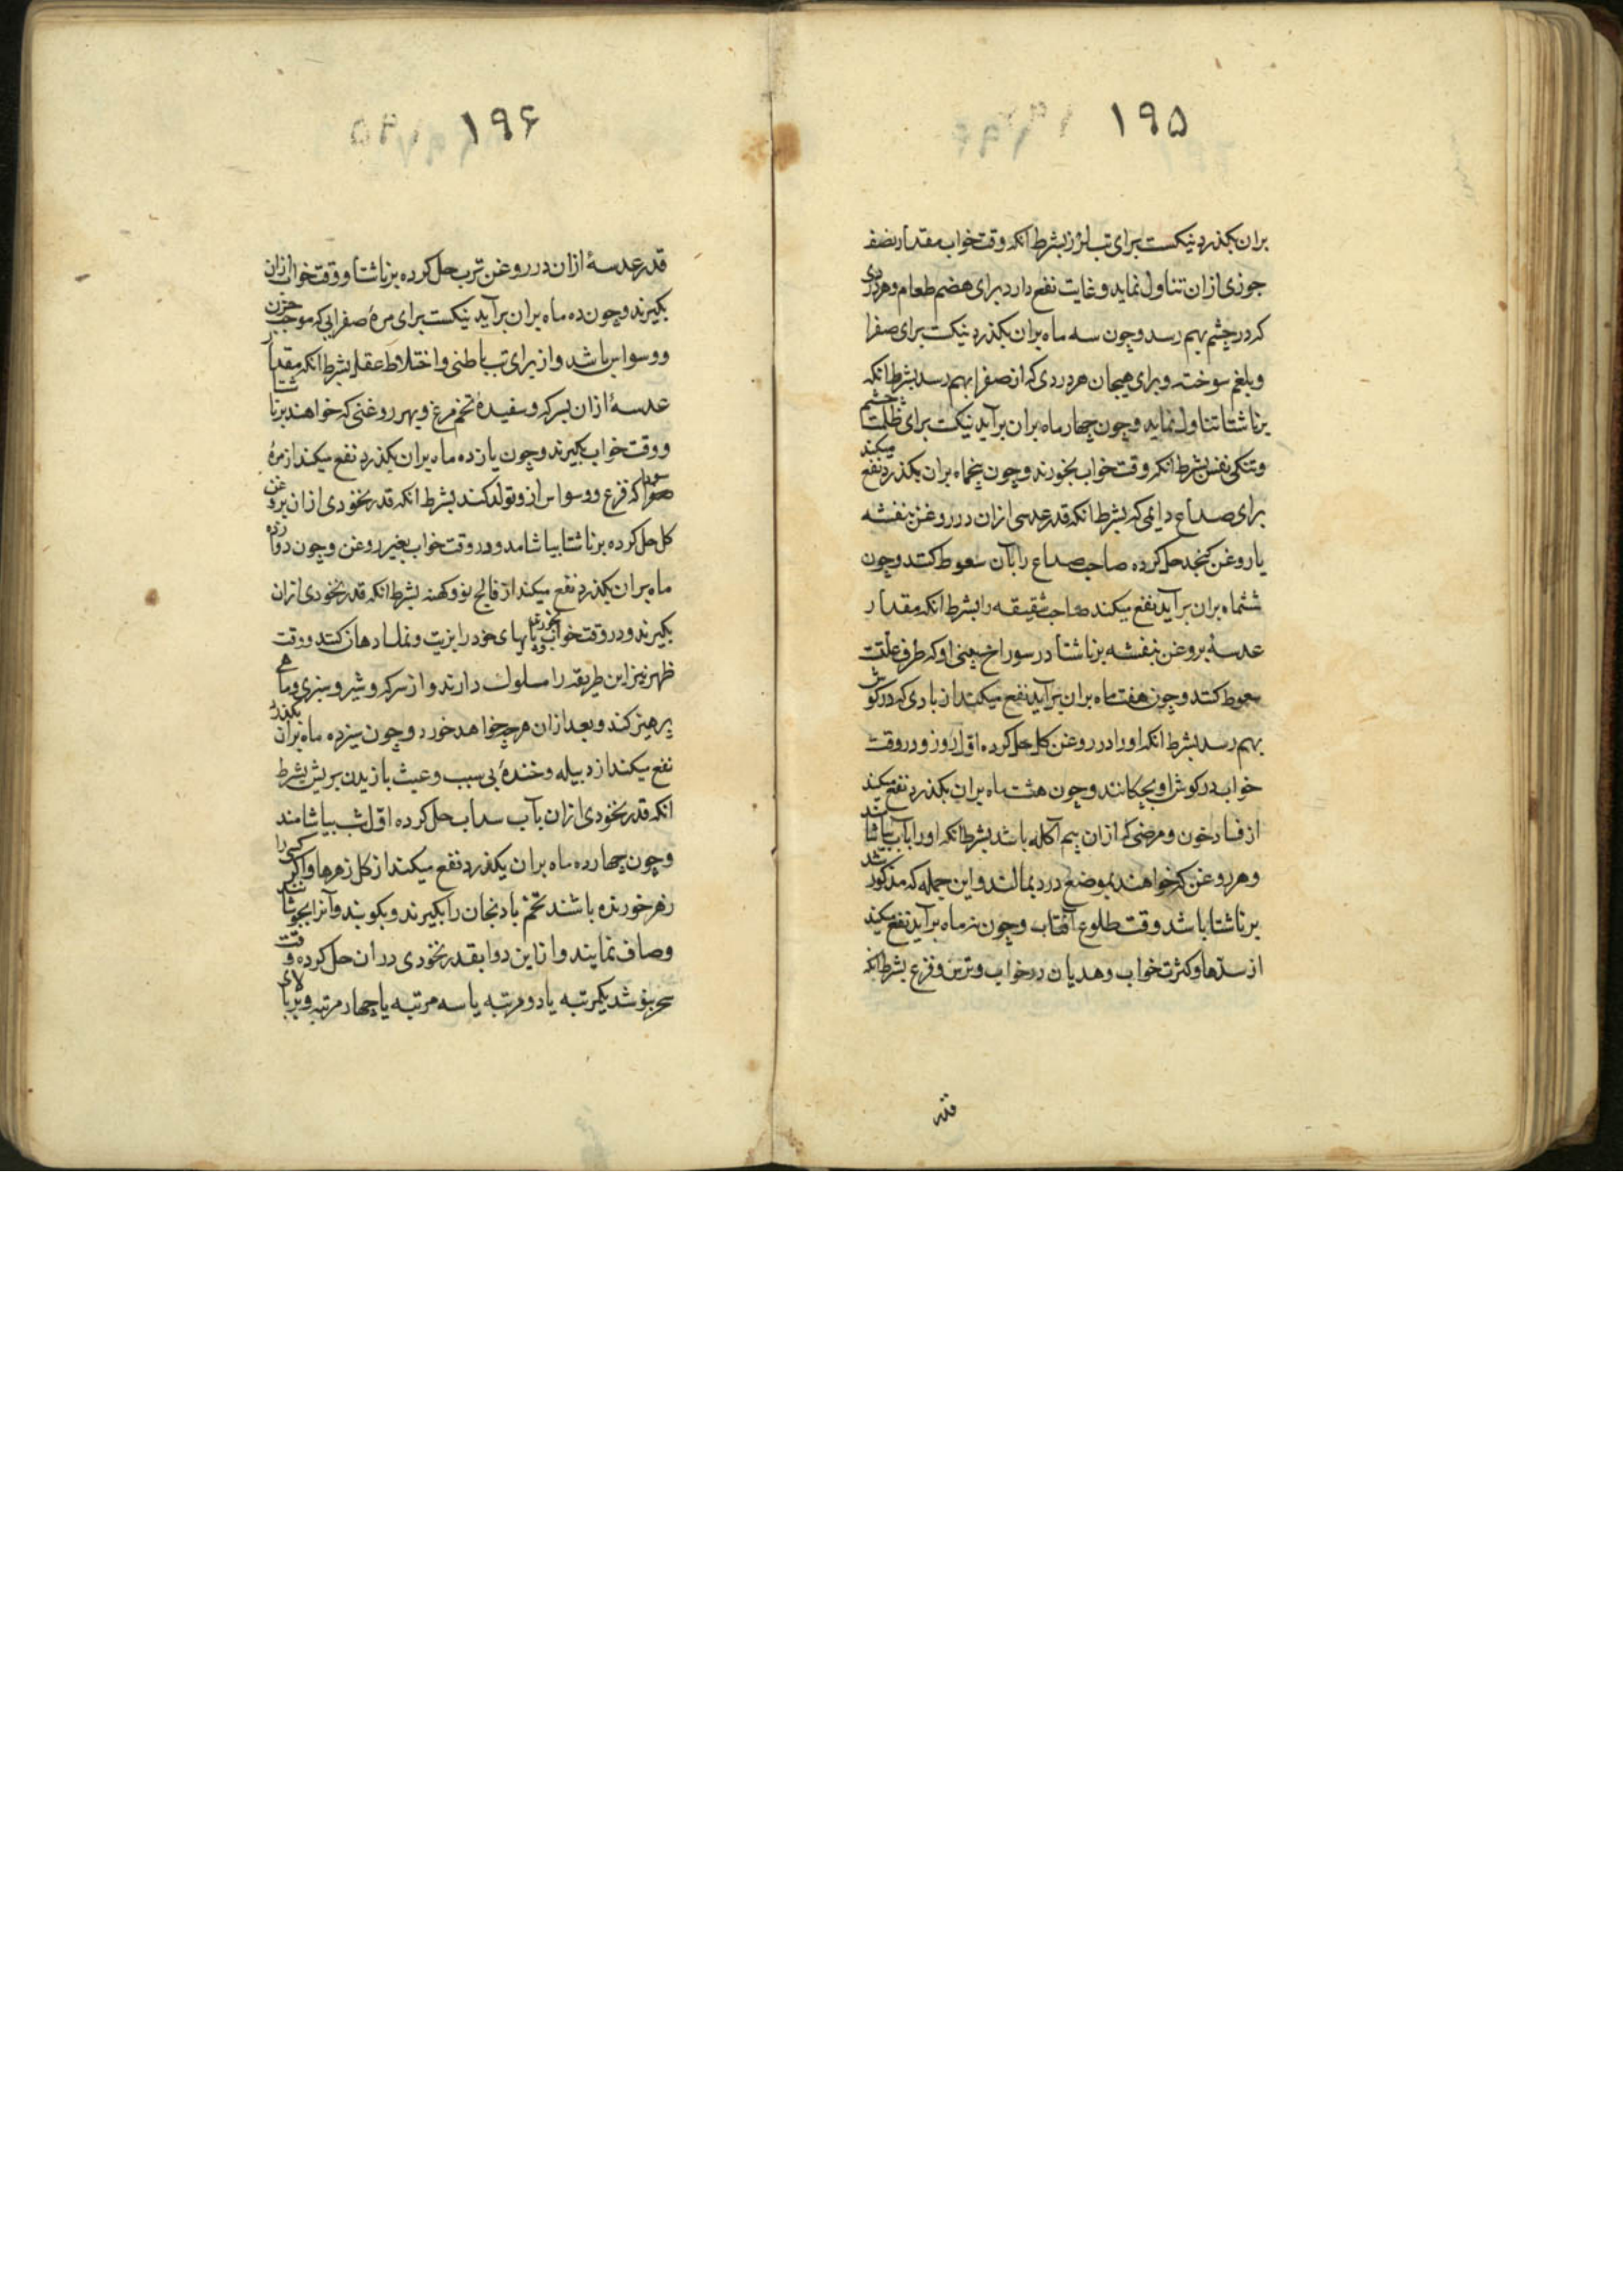 ۱۹۵
بران بکذرد نیکست برای تب لرز بشرط انکه وقت خواب مقدار نصف
جوزی ازان تناول نماید و غایت نفع دارد برای هضم طعام و هر دردی
که در چشم بهم رسد و چون سه ماه بران بکذرد نیکست برای صفرا
و بلغم سوخته و برای هیجان هر دردی که از صفرا بهم رسد بشرط انکه
برناشتا تناول نماید و چون چهار ماه بران برآید نیکست برای ظلمت چشم
و تنکی نفس بشرط انکه وقت خواب بخورند و چون پنجماه بران بکذرد نفع میکند
برای صداع دایمی که بشرط انکه قدر عدسی ازان در روغن بنفشه
یا روغن کنجد حل کرده صاحب صداع را بآن سعوط کنند و چون
ششماه بران برآید نفع میکند صاحب شقیقه را بشرط انکه مقدار
عدسهٔ بروغن بنفشه برناشتا در سوراخ بینی او که طرف علت
سعوط کنند و چون هفت ماه بران برآید نفع میکند از بادی که در کوش
بهم رسد بشرط انکه او را در روغن کل حل کرده اول روز و در وقت
خواب در کوش او بچکانند و چون هشت ماه بران بکذرد نفع میکند
از فساد خون و مرضی که ازان بیم آکله باشد بشرط انکه او را بآب بیاشامند
و هر روغن که خواهند بموضع درد بمالند و این جمله که مذکور شد
برناشتا باشد وقت طلوع آفتاب و چون نه ماه برآید نفع میکند
از سدها و کثرت خواب و هدیان در خواب و ترس و فزع بشرط انکه
قدر
۱۹۶
قدر عدسهٔ ازان در روغن ترب حل کرده برناشتا و وقت خواب ازان
بکیرند و چون ده ماه بران برآید نیکست برای مرهٔ صفرایی که موجب حزن
و وسواس باشد و از برای تب باطنی و اختلاط عقل بشرط انکه مقدار
عدسهٔ ازان بسرکه و سفیدهٔ تخم مرغ و بهر روغنی که خواهند برناشتا
و وقت خواب بکیرند و چون یازده ماه بران بکذرد نفع میکند از مرهٔ
سودا که فزع و وسواس ازو تولد کند بشرط انکه قدر نخودی ازان بروغن
کل حل کرده برناشتا بیاشامد و در وقت خواب بغیر روغن و چون دوازده
ماه بران بکذرد نفع میکند از فالج نو و کهنه بشرط انکه قدر نخودی ازان
بکیرند و در وقت خواب بخورند و پاهای خود را بزیت و نمک ادهان کنند و وقت
ظهر نیز این طریقه را مسلوک دارند و از سرکه و شیر و سبزی و ماهی
پرهیز کند و بعد ازان هر چه خواهد خورد و چون سیزده ماه بران بکذرد
نفع میکند از دبیله و خندهٔ بی سبب و عبث بازیدن بریش بشرط
انکه قدر نخودی ازان بآب سداب حل کرده اول شب بیاشامند
و چون چهارده ماه بران بکذرد نفع میکند از کل زهرها و اکر کسی را
زهر خورنده باشند تخم بادنجان را بکیرند و بکوبند و آنرا بجوشانند
و صاف نمایند و از این دوا بقدر نخودی دران حل کرده وقت
سحر بنوشد یکمرتبه یا دو مرتبه یا سه مرتبه یا چهار مرتبه و بر بالای